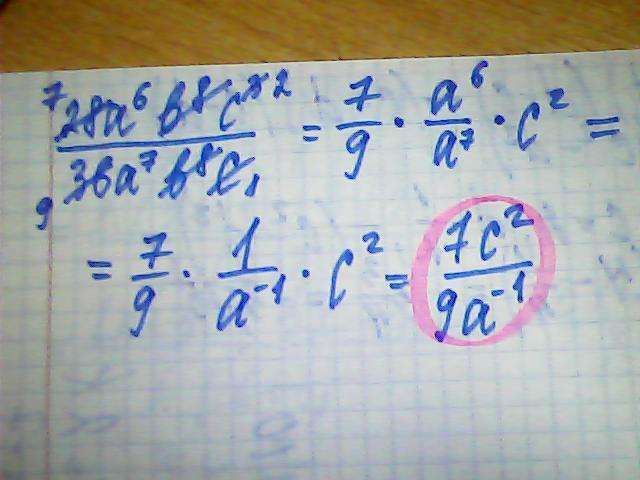 7 28a⁶ b⁸ c² / 9 36a⁷ b⁸ c₁ = 7/9 · a⁶/a⁷ · c² =
= 7/9 · 1/a⁻¹ · c² = 7c²/9a⁻¹